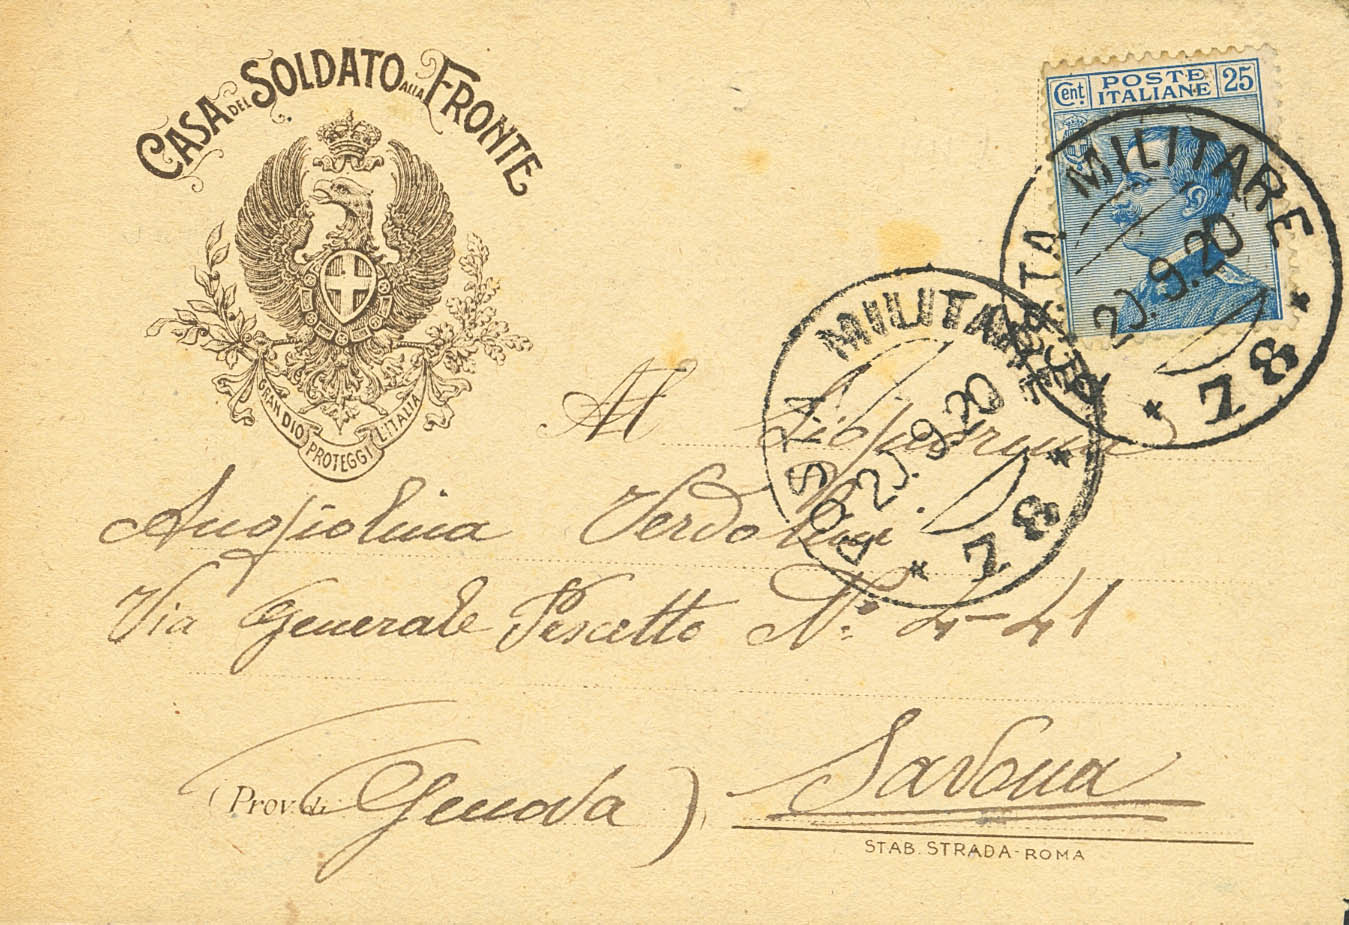 CASA DEL SOLDATO ALLA FRONTE
GRAN DIO PROTEGGI L'ITALIA
Cent. POSTE ITALIANE 25
POSTA MILITARE
20.9.20
* 78 *
POSTA MILITARE
20.9.20
* 78 *
Al
Angiolina Verdolini
Via Generale Pescetto N: 4-41
(Prov. di Genova) Savona
STAB. STRADA-ROMA